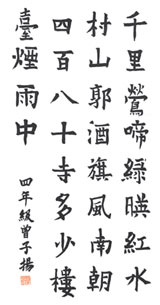 千里鶯啼綠暎紅水
村山郭酒旗風南朝
四百八十寺多少樓
臺煙雨中
四年級曾子揚